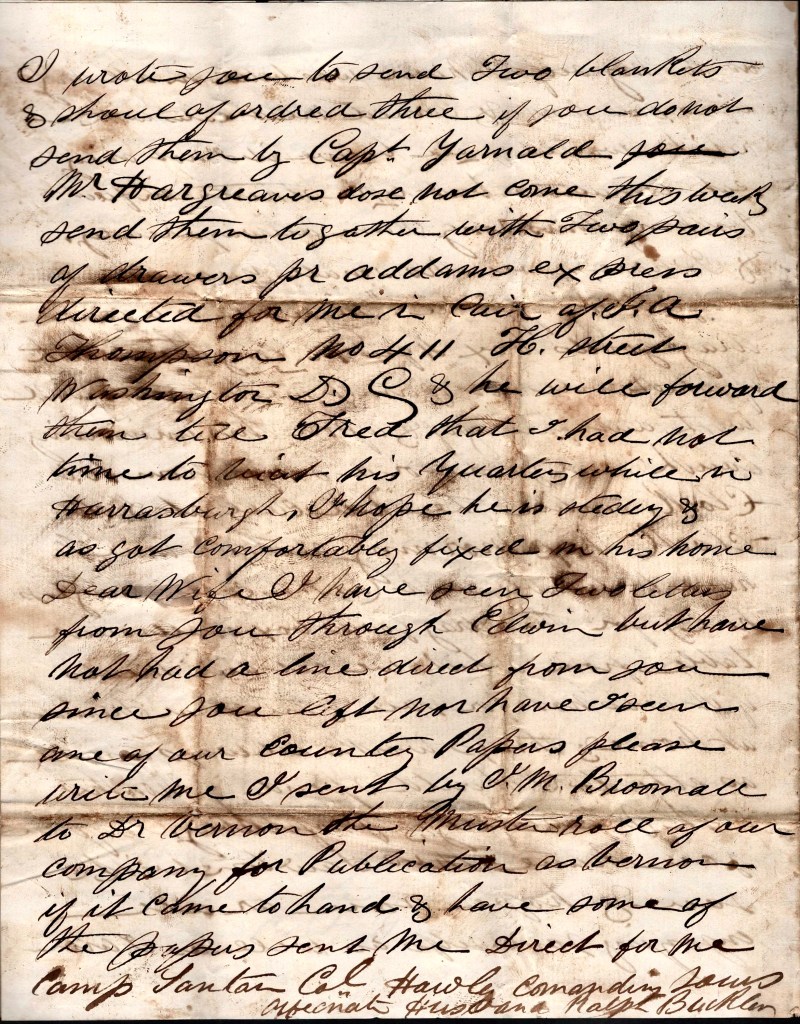 I wrote you to send Two blankets
& shoul of ordred three if you do not
send them by Capt Yarnald you
Mr Hargreaves dose not come this week
send them togather with Two pairs
of drawers pr addams ex press
directed for me in Cair of J. A
Thompson No 411 H. street
Washington D. C & he will forward
them tele Fred that I had not
time to visit his Quarters while in
Harrasburgh, I hope he is stedey &
as got comfortably fixed in his home
Dear Wife I have seen Two letters
from you through Edwin but have
not had a line direct from you
since you left nor have I seen
one of our County Papers please
write me I sent by J. M. Broomall
to Dr Vernon the Muster roll of our
company for Publication as Vernon
if it came to hand & have some of
the papers sent me Direct for me
Camp Col Hawly Comanding yours
Husband Ralph Buckley